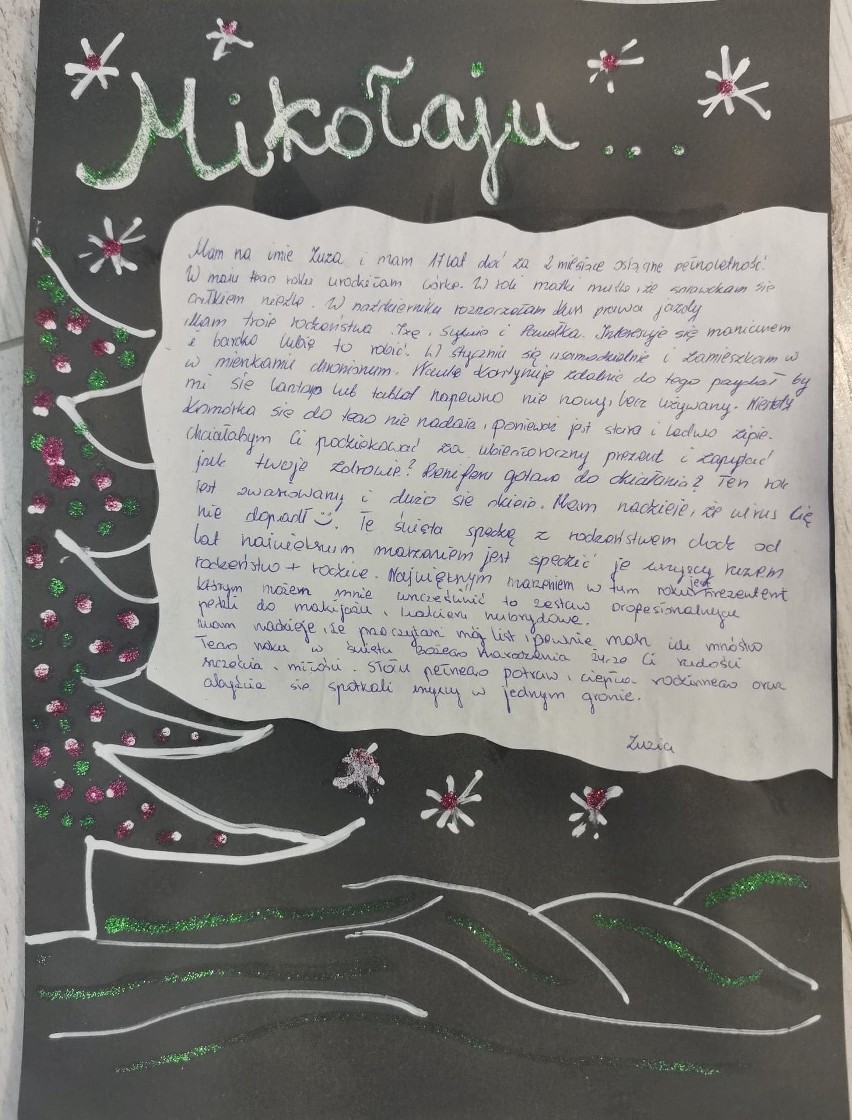 Mikołaju...
Mam na imie Zuza i mam 17 lat dość za 2 miesiące osiągnę pełnoletność.
W maju tego roku urodziłam córkę. W roli matki myślę, że sprawdzam się
całkiem nieźle. W październiku rozpoczęłam kurs prawa jazdy
Mam troje rodzeństwa. Izę, Sylwię i Pawełka. Interesuje się manicurem
i bardzo lubię to robić. W styczniu się usamodzielnie i zamieszkam w
w mieszkaniu chronionym. Naukę kontynuje zdalnie do tego przydał by
mi się laptop lub tablet napewno nie nowy, lecz używany. Niestety
komórka się do tego nie nadaje, ponieważ jest stara i ledwo zipie.
chciałabym Ci podziękować za ubiegłoroczny prezent i zapytać
jak twoje zdrowie? Renifery gotowe do działania? Ten rok
jest zwariowany i dużo się dzieje. Mam nadzieję, że wirus Cię
nie dopadł. Te święta spędzę z rodzeństwem choć od
lat największym marzeniem jest spędzić je wszyscy razem
rodzeństwo + rodzice. Największym marzeniem w tym roku jest prezentent
którym możesz mnie uszcześliwić to zestaw profesjonalnych
pędzli do makijażu, hybrydowe.
Mam nadzieję, że przeczytasz mój list, pewnie masz ich mnóstwo
Tego roku w święta Bożego Narodzenia życzę Ci radości
szczęścia, miłości. Stołu pełnego potraw, ciepła rodzinnego oraz
abyście się spotkali wszyscy w jednym gronie.
Zuzia